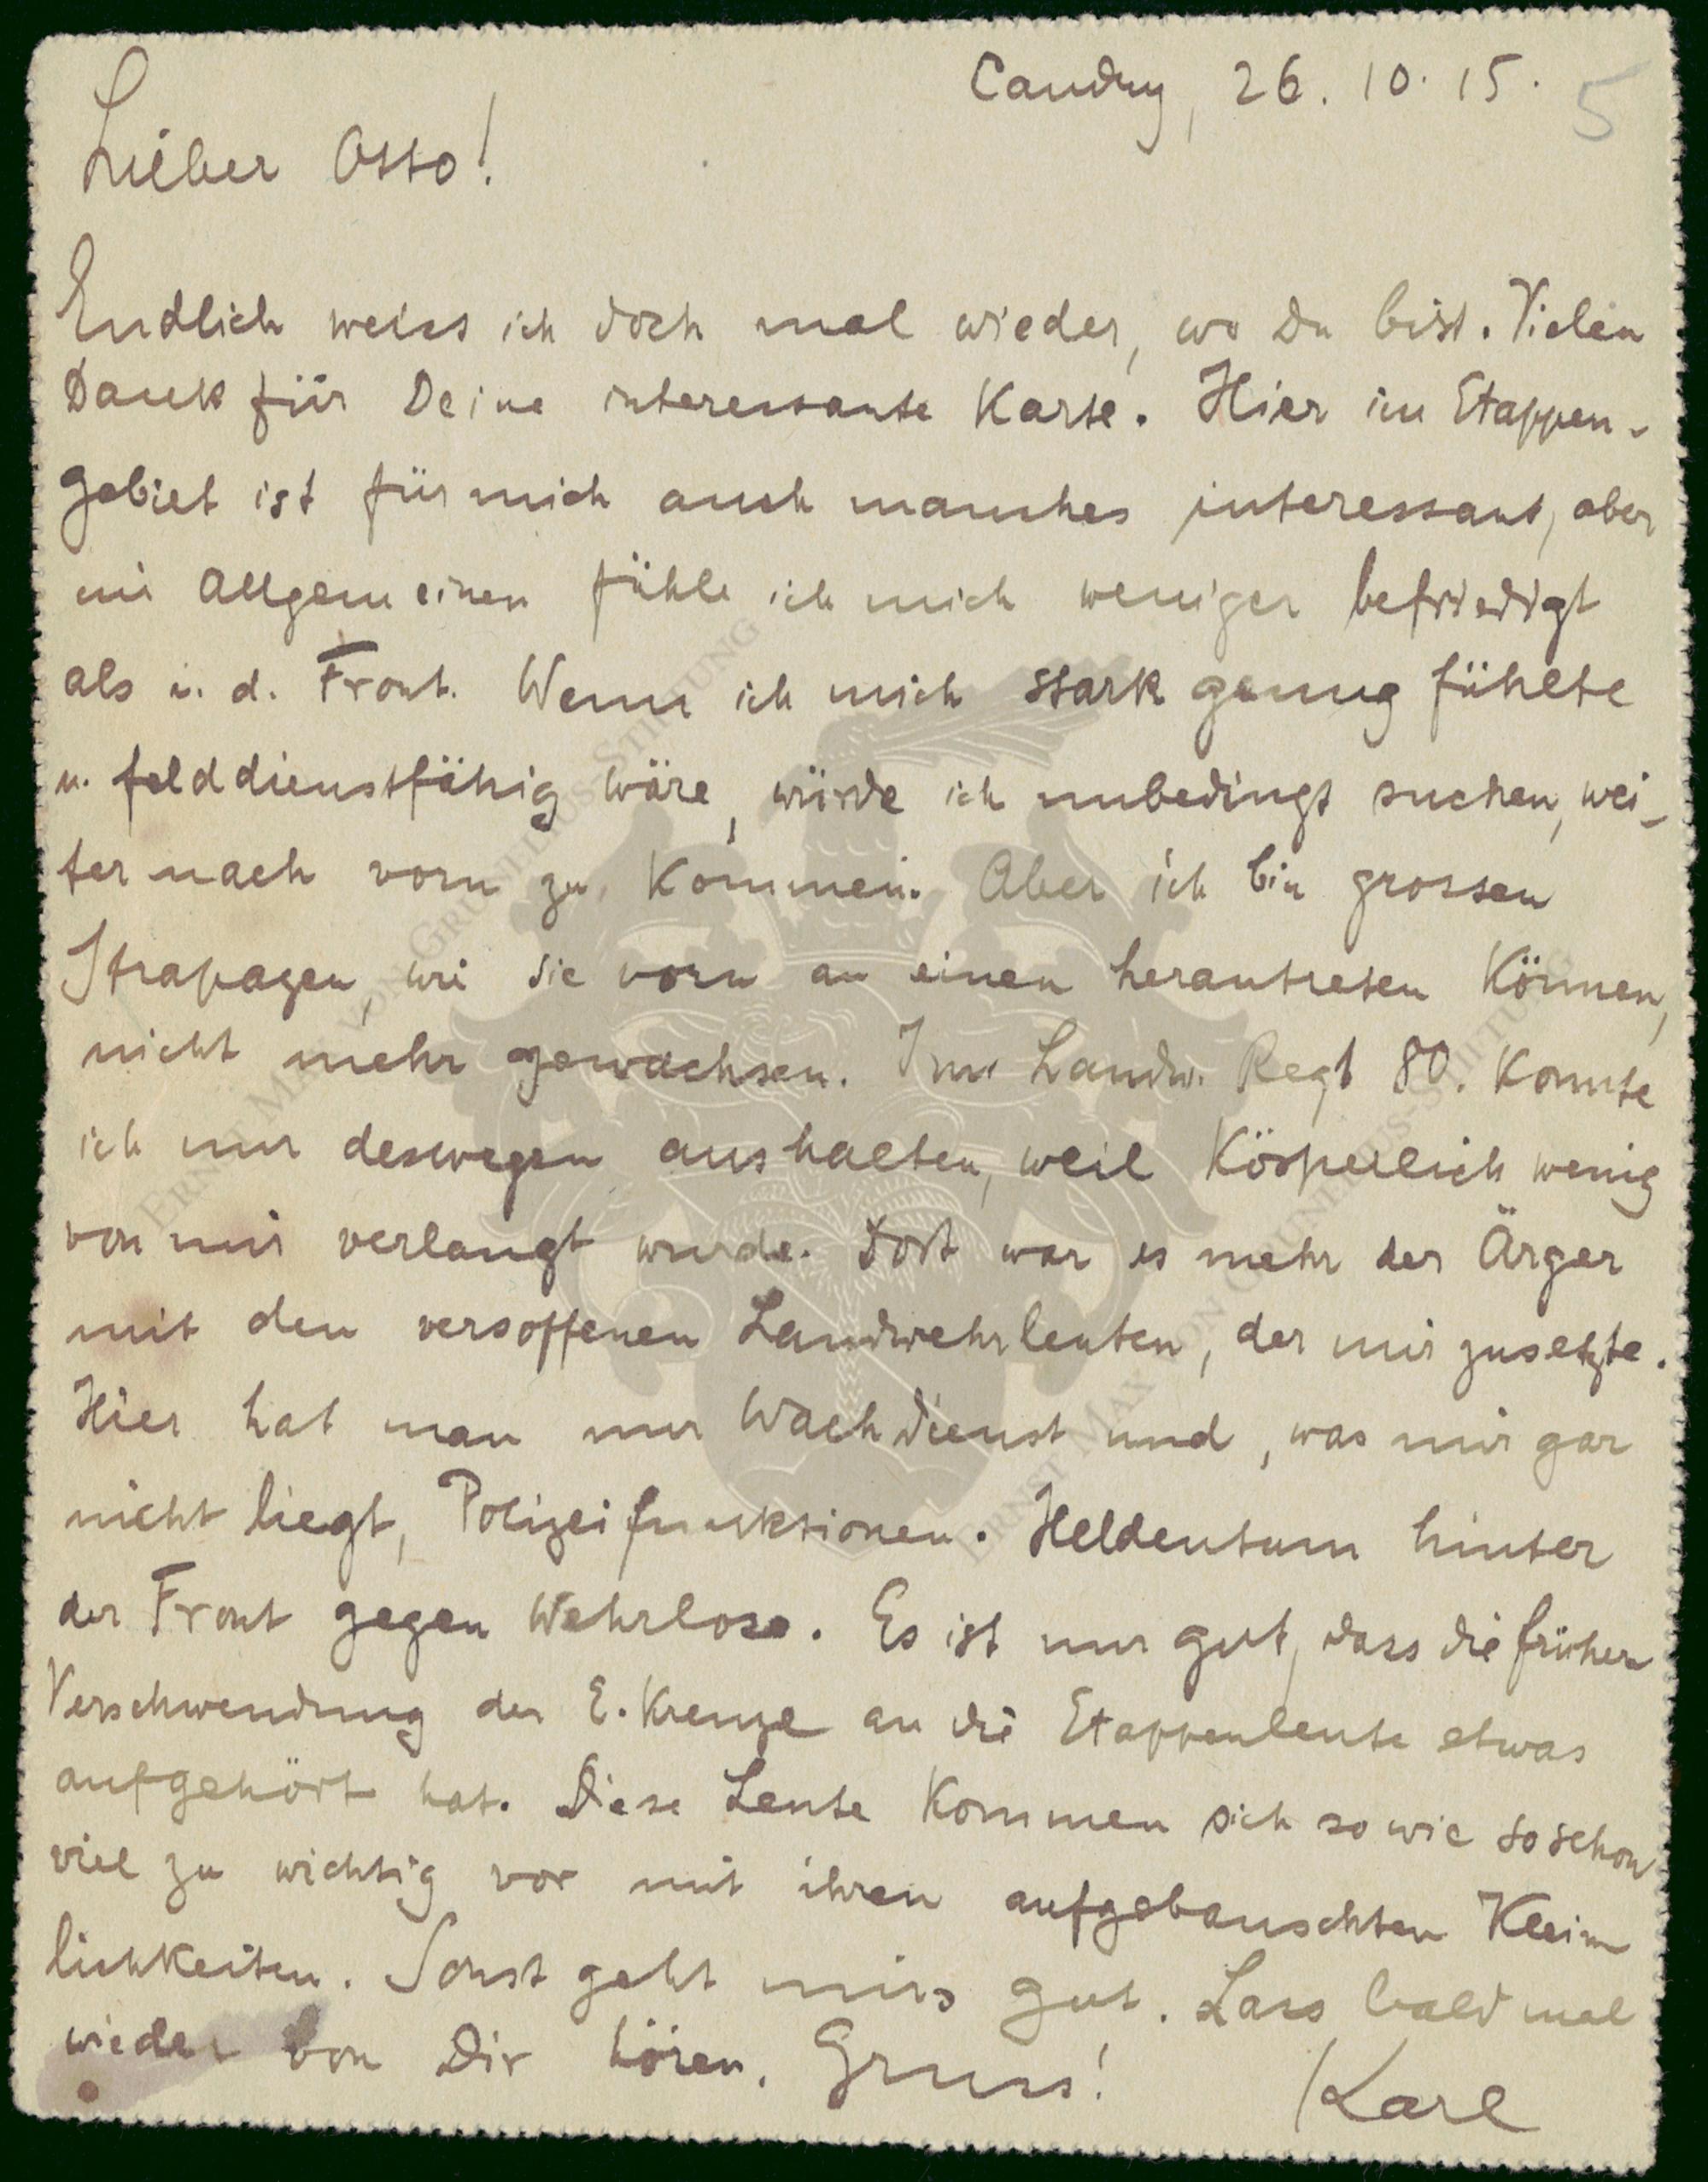 Caudry, 26. 10. 15.
5
Lieber Otto!
Endlich weiss ich doch mal wieder, wo Du bist. Vielen
Dank für Deine interessante Karte. Hier im Etappen-
gebiet ist für mich auch manches interessant, aber
im Allgemeinen fühle ich mich weniger befriedigt
als i. d. Front. Wenn ich mich stark genug fühlte
u. felddienstfähig wäre, würde ich unbedingt suchen, wei-
ter nach vorn zu kommen. Aber ich bin grossen
Strapazen, wie sie vorn an einen herantreten können,
nicht mehr gewachsen. Im Landw. Regt 80. konnte
ich nur deswegen aushalten, weil körperlich wenig
von mir verlangt wurde. Dort war es mehr der Ärger
mit den versoffenen Landwehrleuten, der mir zusetzte.
Hier hat man nur Wachdienst und, was mir gar
nicht liegt, Polizeifunktionen. Heldentum hinter
der Front gegen Wehrlose. Es ist nur gut, dass die frühere
Verschwendung der E. Kreuze an die Etappenleute etwas
aufgehört hat. Diese Leute kommen sich so wie so schon
viel zu wichtig vor mit ihren aufgebauschten Klein
lichkeiten. Sonst geht mirs gut. Lass bald mal
wieder von Dir hören. Gruss!
Karl
ERNST MAX VON GRUNELIUS-STIFTUNG
ERNST MAX VON GRUNELIUS-STIFTUNG